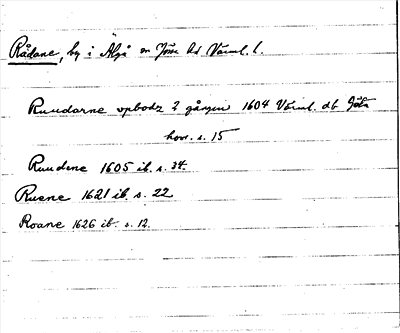 Rådane, by i Älgå sn Jösse hd Värml. l.
Ruudarne opbodz 2 gången 1604 Värml. db Jösse
hov. s. 15
Ruudene 1605 ib. s. 34
Ruene 1621 ib. s. 22
Roane 1626 ib. s. 12.